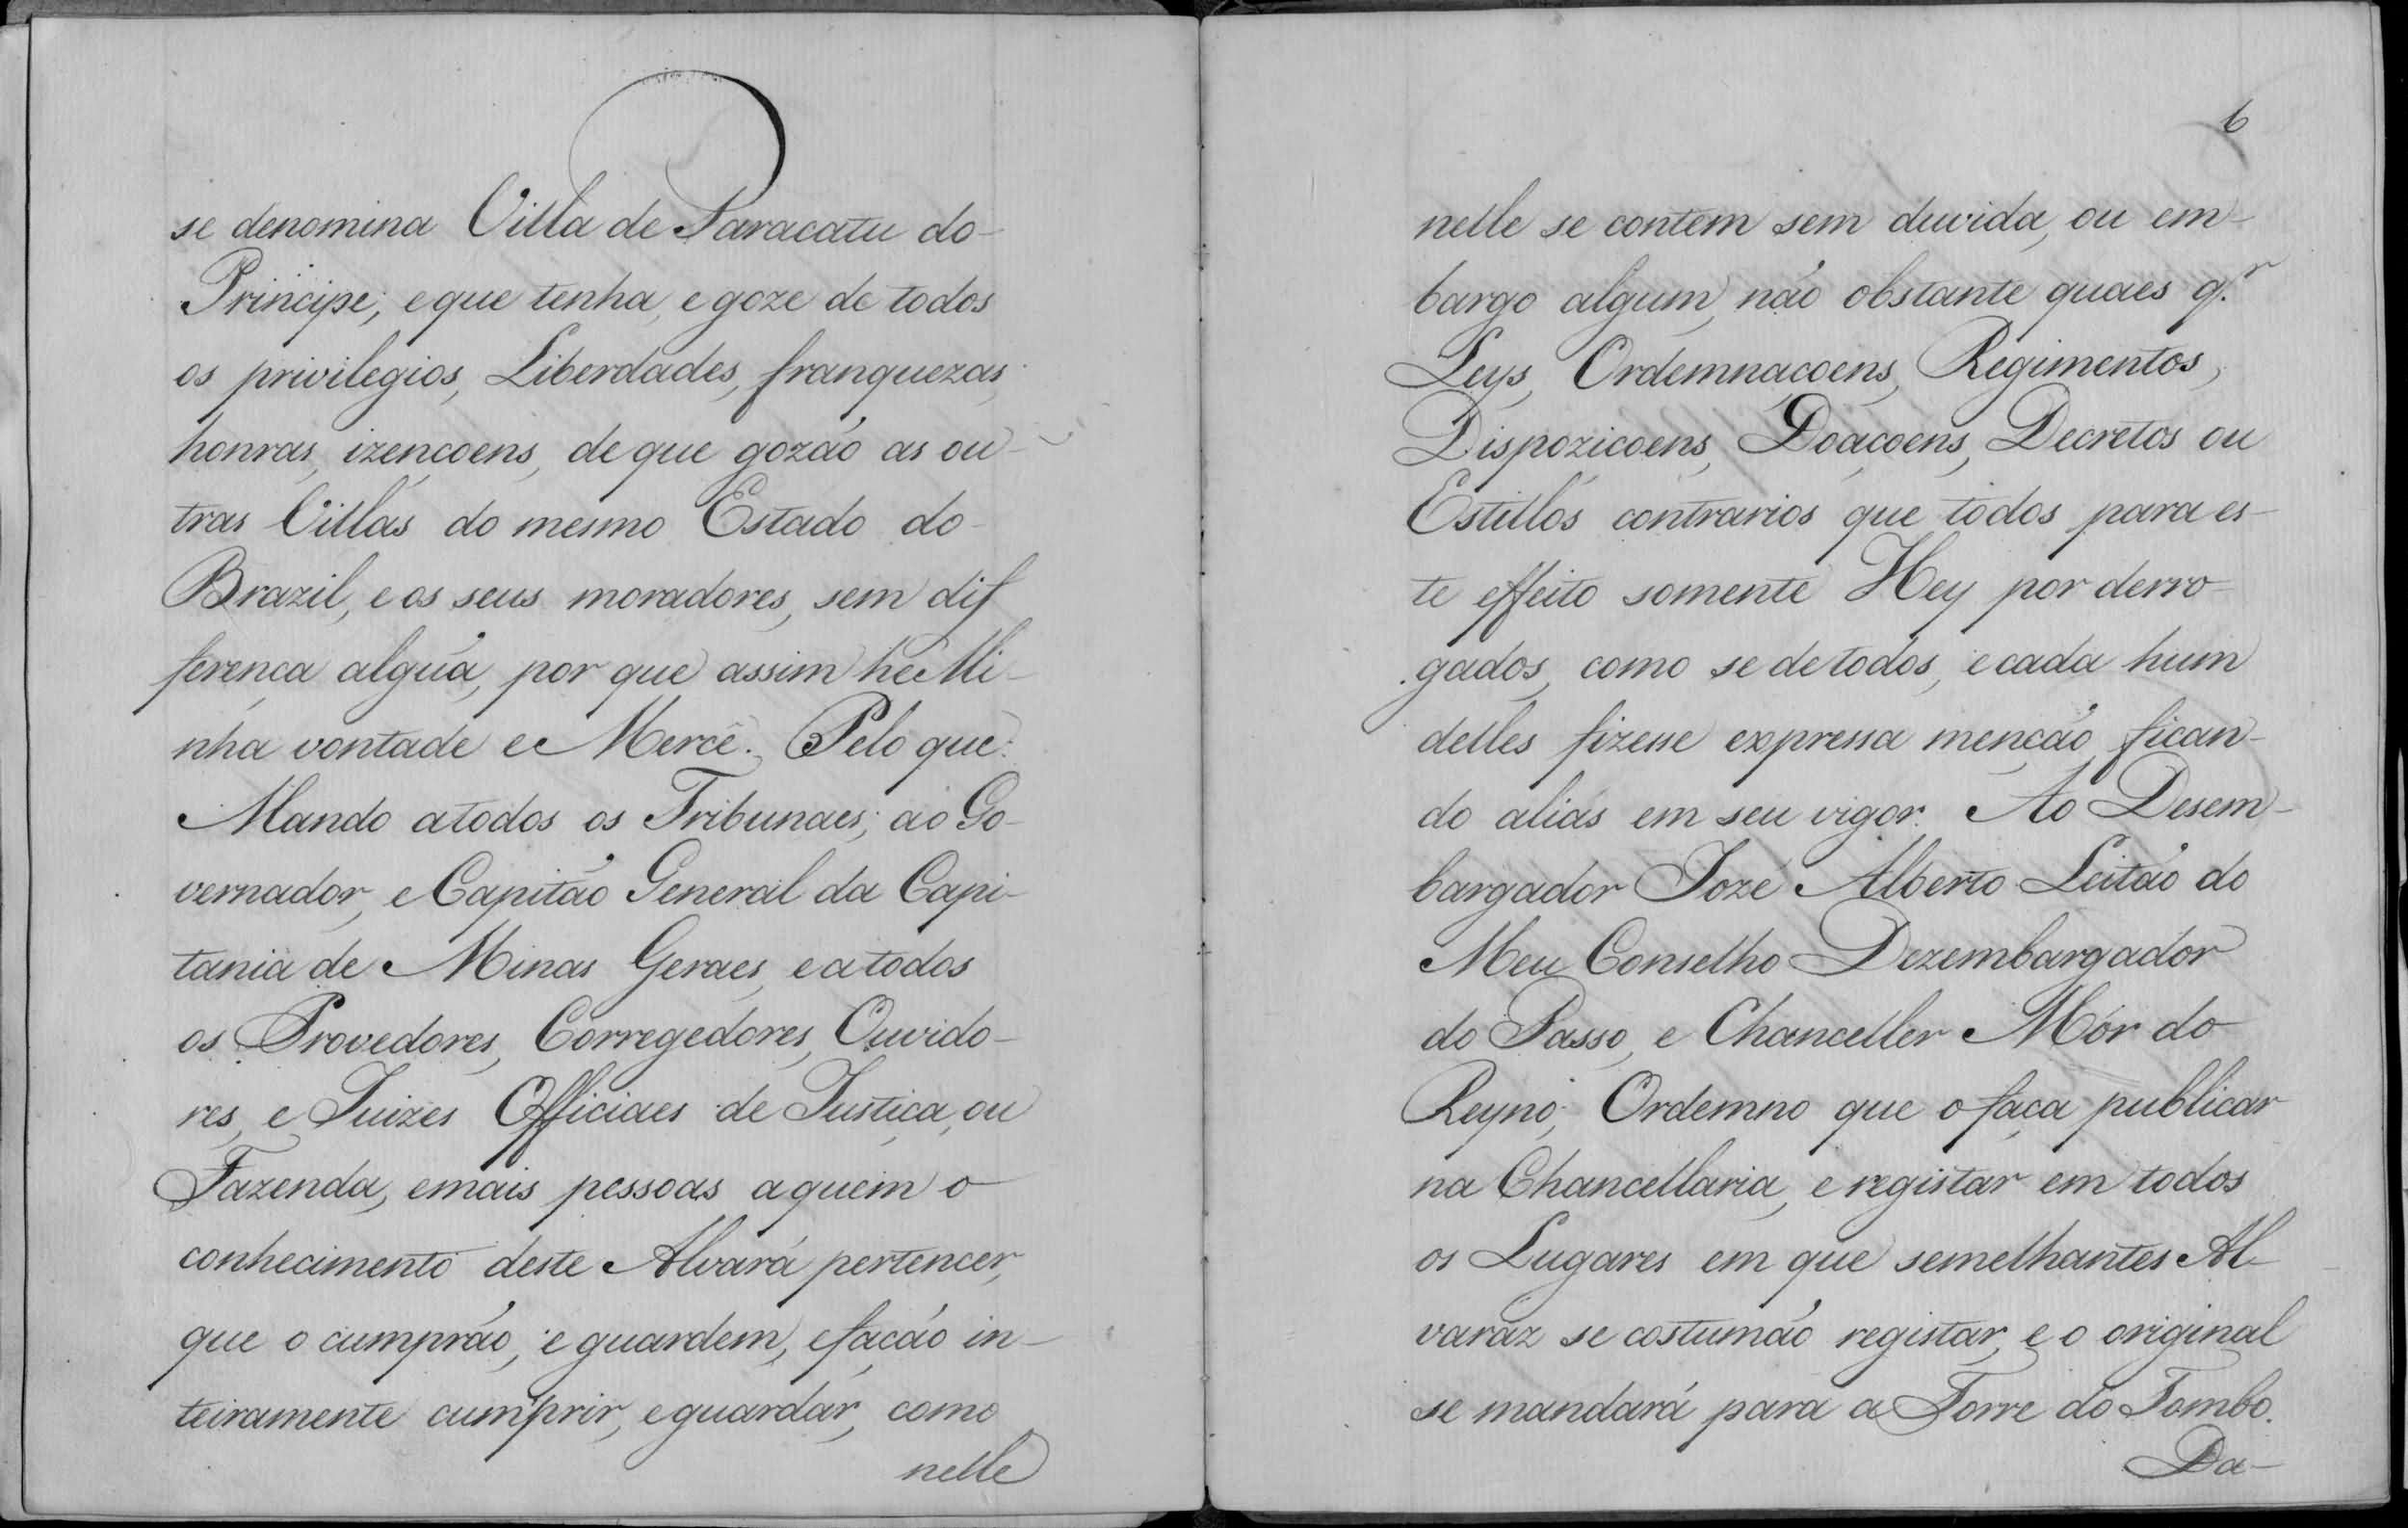 se denomina Villa de Paracatu do-
Principe; eque tenha, e goze de todos
os privilegios, Liberdades, franquezas,
honras, izençoens, de que gozão as ou-
tras Villas do mesmo Estado do-
Brazil, e os seus moradores, sem dif
ferença algũa, por que assim he Mi-
nha vontade e Mercê. Pelo que:
Mando atodos os Tribunaes; ao Go-
vernador, e Capitão General da Capi-
tania de Minas Geraes, e atodos
os Provedores, Corregedores, Ouvido-
res, e Juizes Officiaes de Justiça, ou
Fazenda, emais pessoas aquem o
conhecimento deste Alvará pertencer,
que o cumprão, e guardem, efação in-
teiramente cumprir, eguardar, como
nelle
6
nelle se contem sem duvida, ou em-
bargo algum, não obstante quaes q.r
Leys, Ordemnaçoens, Regimentos,
Dispoziçoens, Doaçoens, Decretos ou
Estillos contrarios que todos para es-
te effeito somente Hey por derro-
gados, como se de todos, e cada hum
delles fizesse expressa menção, fican-
do aliás em seu vigor. Ao Desem-
bargador Jozé Alberto Leitão do
Meu Conselho Dezembargador
do Passo, e Chanceller Mór do
Reyno; Ordemno que o faça publicar
na Chancellaria, e registar em todos
os Lugares em que semelhantes Al-
varáz se costumão registar, e o original
se mandará para a Torre do Tombo.
Da-